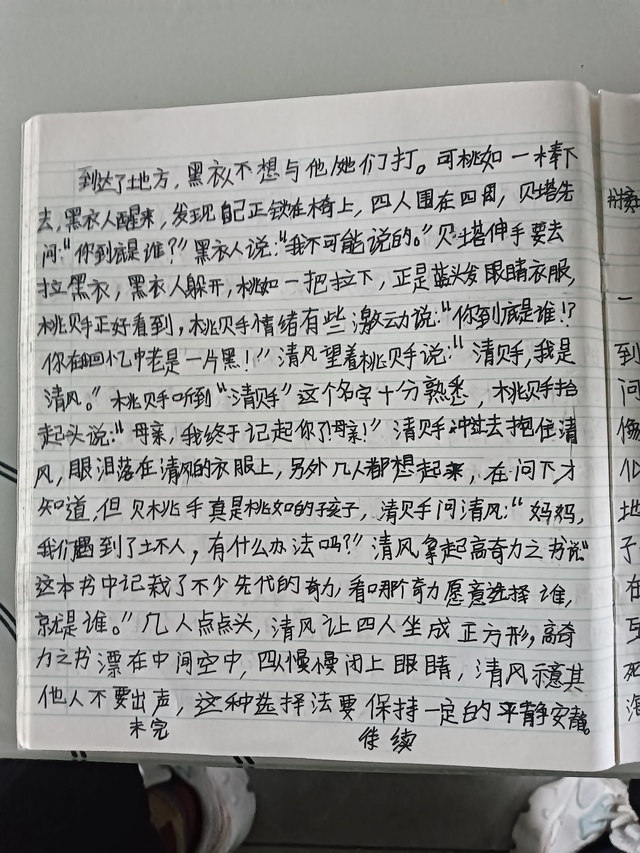 到达了地方，黑衣人不想与他/她们打。可桃如一棒下
去，黑衣人醒来，发现自己正锁在椅上，四人围在四周，贝塔先
问：“你到底是谁？”黑衣人说：“我不可能说的。”贝塔伸手要去
拉黑衣，黑衣人躲开，桃如一把拉下，正是蓝头发眼睛衣服，
桃贝手正好看到，桃贝手情绪有些激动说：“你到底是谁！？
你在回忆中老是一片黑！”清风望着桃贝手说：“清贝手，我是
清风。”桃贝手听到“清贝手”这个名字十分熟悉，桃贝手抬
起头说：“母亲，我终于记起你了母亲！”清贝手冲过去抱住清
风，眼泪落在清风的衣服上，另外几人都想起来，在问下才
知道，但贝桃手真是桃如的孩子，清贝手问清风：“妈妈，
我们遇到了土不人，有什么办法吗？”清风拿起高奇力之书说：“
这本书中记栽了不少先代的奇力，看哪个奇力愿意选择谁，
就是谁。”几人点点头，清风让四人坐成正方形，高奇
力之书漂在中间空中，四人慢慢闭上眼睛，清风示意其
他人不要出声，这种选择法要保持一定的平静安静。
未完 待续
到
问
化
地
子
在
互
死